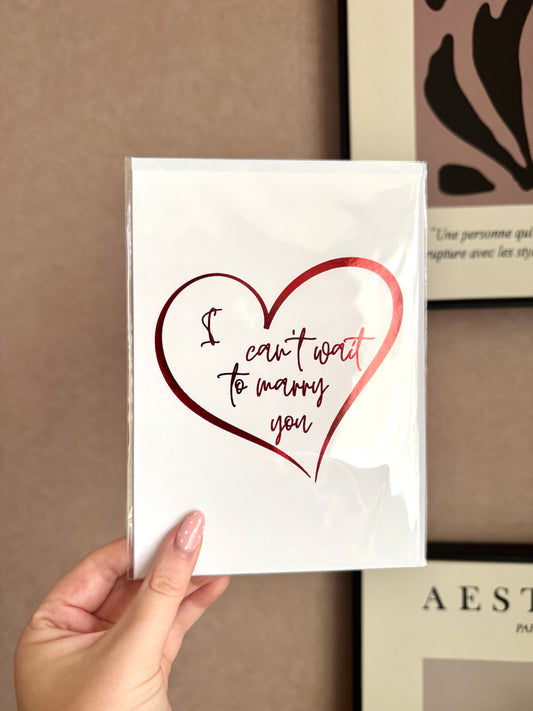 "Une personne qui
rupture avec les
I can't wait
to marry
you
AEST